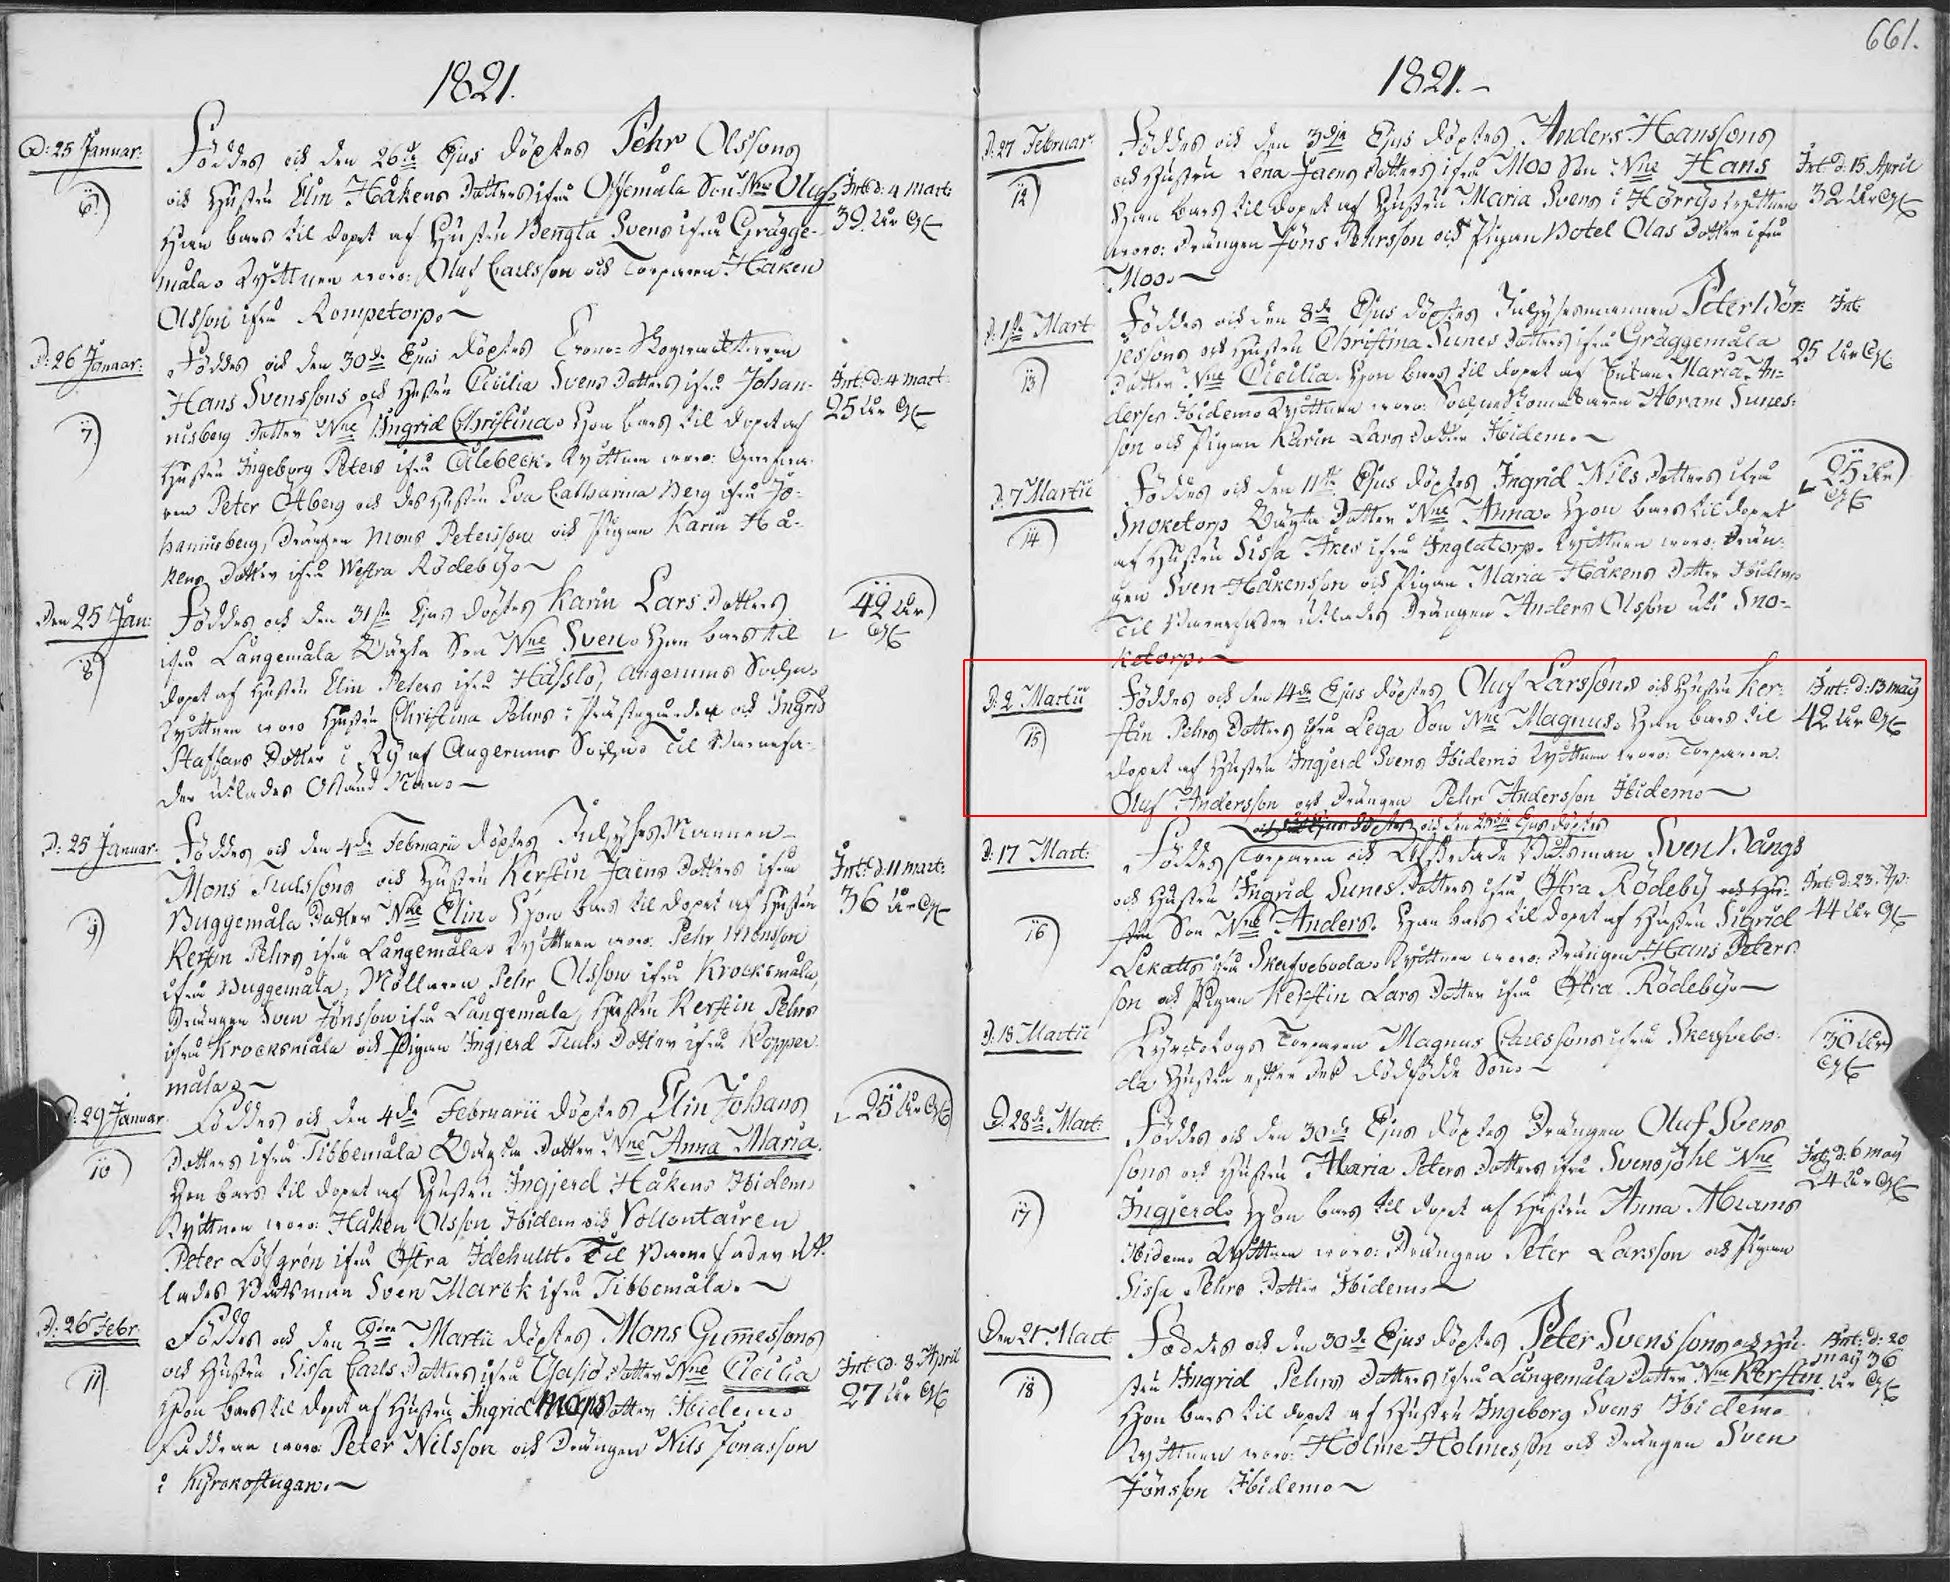 661.
1821.
D: 25 Januar:
6)
Föddes och den 26te Ejus döptes Pehr Olssons
och Hustru Elin Håkens Dotters ifrån Offemåla Son Nne Oluf.
Han bars til dopet af Hustru Bengta Svens ifrån Grägge-
måla. Vittnen woro: Oluf Carlsson och Torparen Håken
Olsson ifrån Rompetorp.
Int: d: 4 Mart:
39. år
D: 26 Januar:
7)
Föddes och den 30de Ejus döptes Crono-
Hans Svenssons och Hustru Cicilia Svens Dotters ifrån Johan-
nisberg Dotter Nne Ingrid Christina. Hon bars til dopet af
Hustru Ingeborg Peters ifrån Vittnen woro:
Peter och des Hustru Eva Catharina Berg ifrån Jo-
hannisberg, Drängen Mons Petersson och Pigan Karin Hå-
kens Dotter ifrån Westra Rödeby.
Int: d: 4 mart:
25 år
Den 25 Jan:
8)
Föddes och den 31ste Ejus döptes Karin Lars Dotters
ifrån Långemåla Oägta Son Nne Sven. Han bars til
dopet af Hustru Elin Peters ifrån Hässlo, Augerums Sochn.
Vittnen woro Hustru Christina Pehrs i Prästegården och Ingrid
Staffans Dotter i Ry af Augerums Sochn. Til Barnefa-
der utlades
42 år
D: 25 Januar:
9)
Föddes och den 4de Februarii döptes
Mons Truulssons och Hustru Kerstin Jaens Dotters ifrån
Buggemåla Dotter Nne Elin. Hon bars til dopet af Hustru
Kerstin Pehrs ifrån Långemåla. Vittnen woro: Pehr Monsson
ifrån Buggemåla, Möllaren Pehr Olsson ifrån Krocksmåla,
Drängen Sven Jönsson ifrån Långemåla, Hustru Kerstin Pehrs
ifrån Krocksmåla och Pigan Ingjerd Truls Dotter ifrån Kopper-
måla.
Int: d: 11 mart:
36 år
D: 29 Januar.
10)
Föddes och den 4de Februarii döptes Elin Johans
Dotters ifrån Tibbemåla Oägta Dotter Nne Anna Maria.
Hon bars til dopet af Hustru Ingjerd Håkens Ibidem.
Vittnen woro: Håken Olsson Ibidem och Vollontairen
Peter Löfgrén ifrån Östra Idehullt. Til Barne fader ut-
lades Båtsman Sven Marck ifrån Tibbemåla.
25 år
D: 26 Febr:
11)
Föddes och den Martii döptes Mons Gummessons
och Hustru Sissa Carls Dotters ifrån Dotter Nne Cicilia
Hon bars til dopet af Hustru Ingrid Mons Dotter Ibidem.
Faddrar woro: Peter Nilsson och Drängen Nils Jonasson
i Kyrkostugan.
Int: d: 8 April
27 år
1821.
D: 27 Februar.
12)
Föddes och den 3dje Ejus döptes Anders Hanssons
och Hustru Lena Jaens Dotters ifrån Moo Son Nne Hans
Han bars til dopet af Hustru Maria Svens i Vittnen
woro: Drängen Jöns Pehrsson och Pigan Botel Olas Dotter ifrån
Moo.
Int: d: 15 April
32 år
D: 1ste Mart:
13)
Föddes och den 8de Ejus döptes Peter Bör-
jessons och Hustru Christina Sunes Dotters ifrån Gräggemåla
Dotter Nne Cicilia. Hon bars til dopet af Enkan Maria An-
ders Ibidem. Vittnen woro: Abram Sunes-
son och Pigan Karin Lars Dotter Ibidem.
Int:
25 år
D: 7 Martii
14)
Föddes och den 11te Ejus döptes Ingrid Nils Dotters ifrån
Snoketorp Oägta Dotter Nne Anna. Hon bars til dopet
af Hustru Sissa Åkes ifrån Inglatorp. Vittnen woro: Drän-
gen Sven Håkensson och Pigan Maria Håkens Dotter Ibidem
Til Barnefader utlades Drängen Anders Olsson uti Sno-
ketorp.
25 år
D: 2 Martii
15)
Föddes och den 4de Ejus döptes Oluf Larssons och Hustru Ker-
stin Pehrs Dotters ifrån Lega Son Nne Magnus. Han bars til
dopet af Hustru Ingjerd Svens Ibidem. Vittnen woro: Torparen
Oluf Andersson och Drängen Pehr Andersson Ibidem.
Int: d: 13 maij
42 år
D: 17 Mart:
16)
och den 25te Ejus döptes
Föddes Torparen och Båtsman Sven Bångs
och Hustru Ingrid Sunes Dotters ifrån Östra Rödeby och Hu-
stru Son Nne Anders. Han bars til dopet af Hustru Sigrid
Lekatts ifrån Skarfveboda. Vittnen woro: Drängen Hans Peters-
son och Pigan Kerstin Lars Dotter ifrån Östra Rödeby.
Int: d: 23 Ap:
44 år
D: 18 Martii
Kyrckotogs Torparen Magnus Carlssons ifrån Skarfvebo-
da Hustru efter des dödfödde Son.
30 år
D. 28de Mart:
17)
Föddes och den 30de Ejus döptes Drängen Oluf Svens
sons och Hustru Maria Peters Dotters ifrån Svensjöhl Nne
Ingjerd. Hon bars til dopet af Hustru Anna Abrams
Ibidem. Vittnen woro: Drängen Peter Larsson och Pigan
Sissa Pehrs Dotter Ibidem.
Int: d: 6 maij
24 år
Den 21 Mart
18)
Föddes och den 30de Ejus döptes Peter Svenssons och Hu-
stru Ingrid Pehrs Dotters ifrån Långemåla Dotter Nne Kerstin
Hon bars til dopet af Hustru Ingeborg Svens Ibidem.
Vittnen woro: Holme Holmesson och Drängen Sven
Jönsson Ibidem.
Int: d: 20
maij 36
år